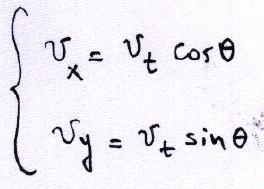 v_x = v_t cos θ
v_y = v_t sin θ